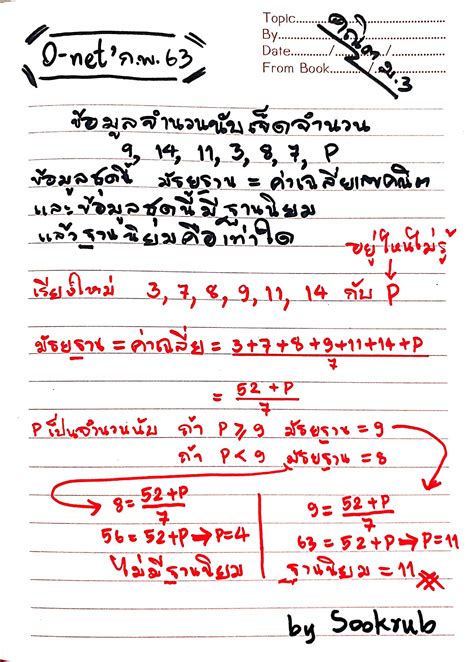 Topic
By
Date / /
From Book
คณิต ม.3
O-net' ก.พ. 63
ข้อมูลจำนวนนับเจ็ดจำนวน
9, 14, 11, 3, 8, 7, P
ข้อมูลชุดนี้ มัธยฐาน = ค่าเฉลี่ยเลขคณิต
และข้อมูลชุดนี้มีฐานนิยม
แล้วฐานนิยมคือเท่าใด
อยู่ไหนไม่รู้
เรียงใหม่ 3, 7, 8, 9, 11, 14 กับ P
มัธยฐาน = ค่าเฉลี่ย = 3+7+8+9+11+14+P
7
= 52+P
7
P เป็นจำนวนนับ ถ้า P ≥ 9 มัธยฐาน = 9
ถ้า P < 9 มัธยฐาน = 8
8 = 52+P
7
56 = 52+P → P=4
ไม่มีฐานนิยม
9 = 52+P
7
63 = 52+P → P=11
ฐานนิยม = 11
by Sookrub